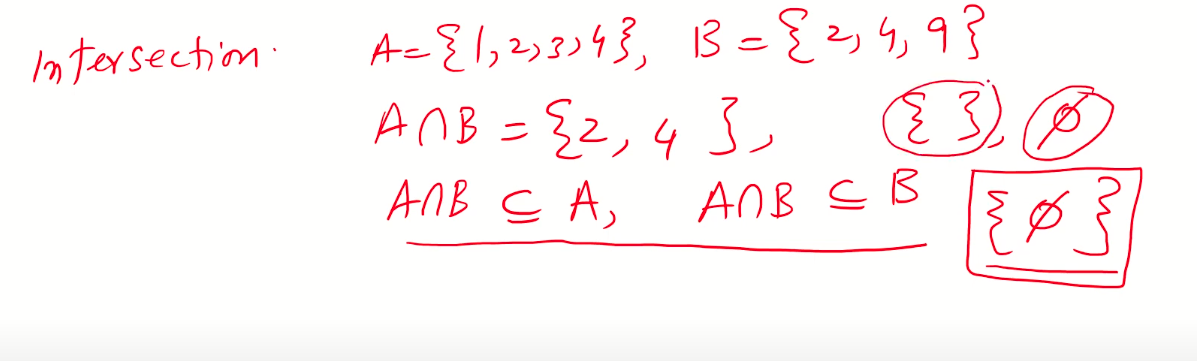 Intersection. A={1,2,3,4}, B={2,4,9}
A∩B={2,4}, { }, ∅
A∩B ⊆ A, A∩B ⊆ B {∅}